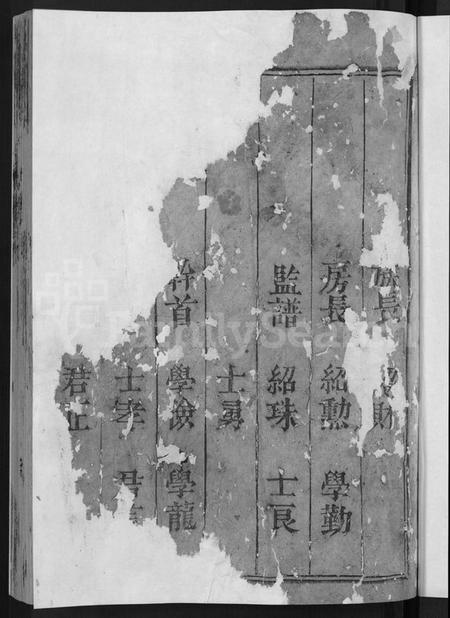 長 財
房長 紹勲 學勤
監譜 紹珠 士良
士勇
首 學儉 學龍
士孝 君
君正
FamilySearch